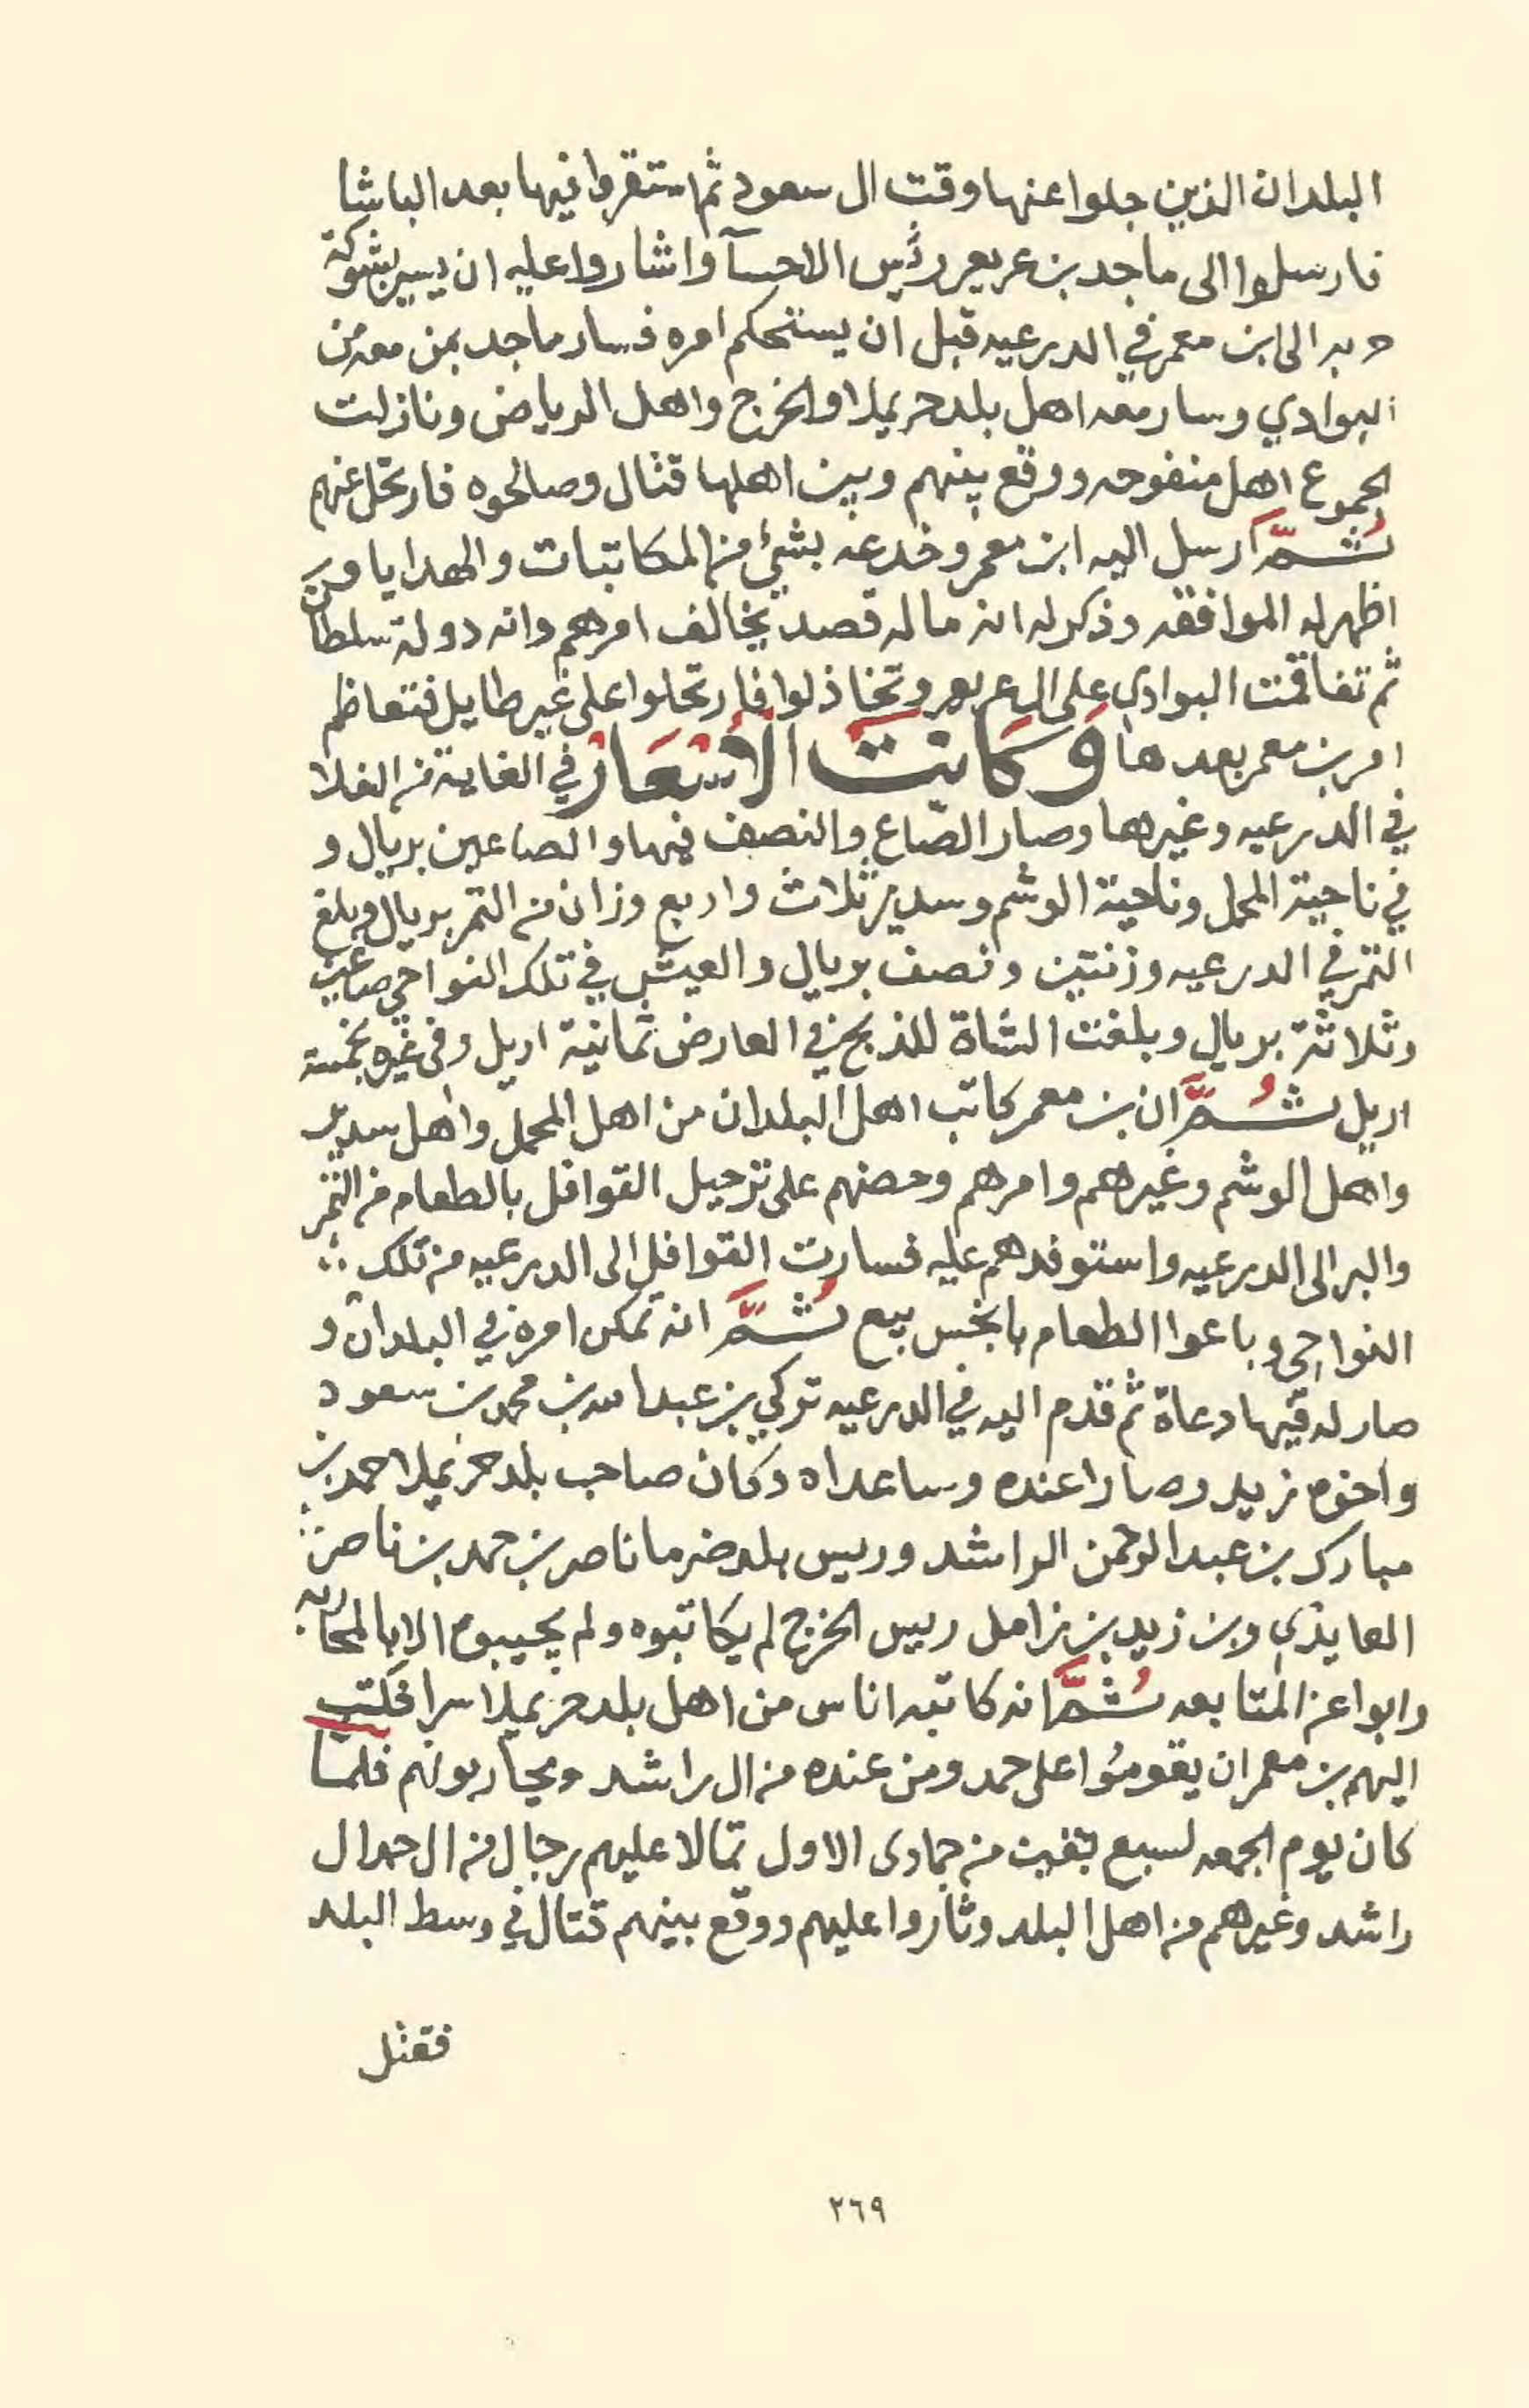 البلدان الذين جلوا عنها وقت ال سعود ثم استقروا فيها بعد الباشا
فارسلوا الى ماجد بن عريعر رئيس الاحسآ واشاروا عليه ان يسير بشوكة
حربه الى ابن معمر في الدرعيه قبل ان يستحكم امره فسار ماجد بمن معه من
البوادي وسار معه اهل بلد حريملا والخرج واهل الرياض ونازلت
الجموع اهل منفوحه ووقع بينهم وبين اهلها قتال وصالحوه فارتحل عنهم
ثُمَّ ارسل اليه ابن معمر وخدعه بشيٍ من المكاتبات والهدايا و
اظهر له الموافقه وذكر له انه ما له قصد يخالف امرهم وانه دولة سلطان
ثم تفاقمت البوادي على ال عريعر وتخاذلوا فارتحلوا على غير طايل فتعاظم
امر بن معمر بعدها وَكَانَت الأَسْعَارُ في الغاية من الغلا
في الدرعيه وغيرها وصار الصّاع والنصف فيها والصاعين بريال و
في ناحية المحمل وناحية الوشم وسدير ثلاث واربع وزان من التمر بريال وبلغ
التمر في الدرعيه وزنتين ونصف بريال والعيش في تلك النواحي صاعين
وثلاثة بريال وبلغت الشاة للذبح في العارض ثمانية اريل وفي غيره بخمسة
اريل ثُمَّ ان بن معمر كاتب اهل البلدان من اهل المحمل واهل سدير
واهل الوشم وغيرهم وامرهم وحضهم على ترحيل القوافل بالطعام من التمر
والبر الى الدرعيه واستوفدهم عليه فسارت القوافل الى الدرعيه من تلك
النواحي وباعوا الطعام بابخس بيع ثُمَّ انه تمكن امره في البلدان و
صار له فيها دعاة ثم قدم اليه في الدرعيه تركي بن عبدالله بن محمد بن سعود
واخوه زيد وصارا عنده وساعداه وكان صاحب بلد حريملا احمد بن
مبارك بن عبد الرحمن الراشد وريس بلد ضرما ناصر بن حمد بن ناصر
العايذي وبن زيد بن زامل ريس الخرج لم يكاتبوه ولم يجيبوه الا بالمحاربه
وابوا عن المتابعه ثُمَّ انه كاتبه اناس من اهل بلد حريملا سرا فكتب
اليهم بن معمر ان يقومُوا على حمد ومن عنده من ال راشد ويحاربونهم فلما
كان يوم الجمعه لسبع بقين من جمادى الاول تمالا عليهم رجال من ال حمد ال
راشد وغيرهم من اهل البلد وثاروا عليهم ووقع بينهم قتال في وسط البلد
فقتل
٢٦٩